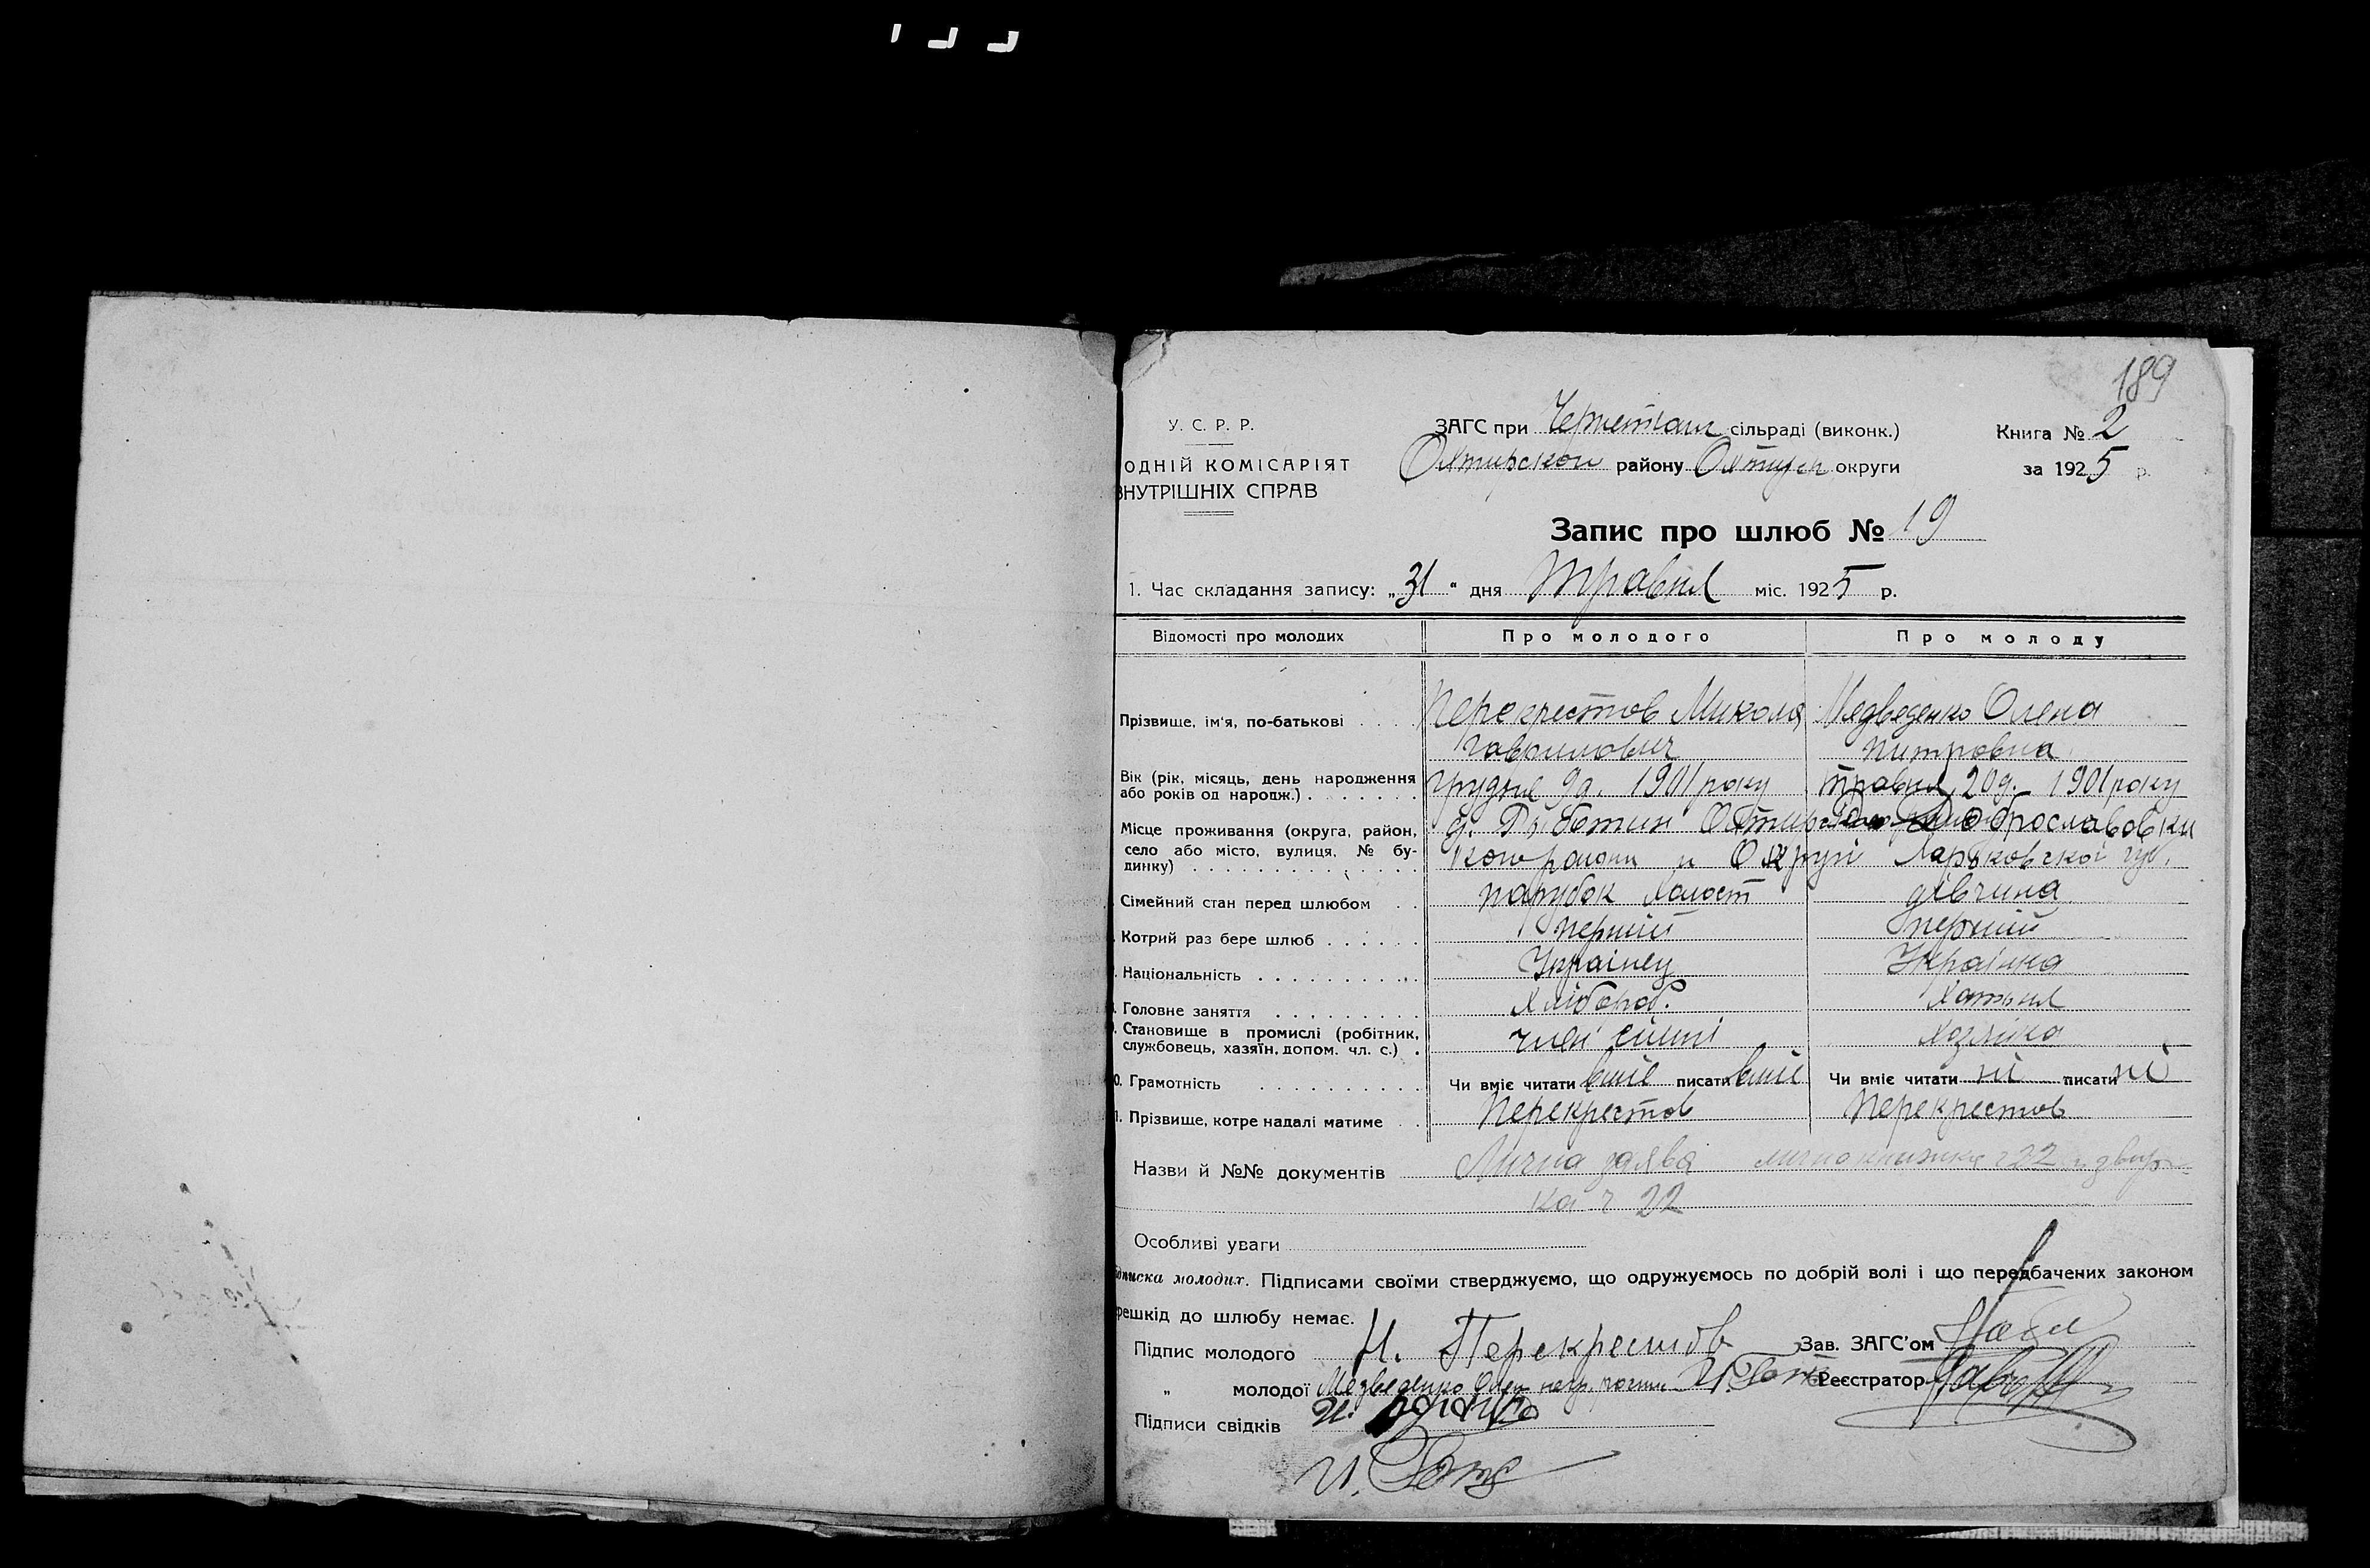 189
У. С. Р. Р.
ОДНІЙ КОМІСАРІЯТ
ВНУТРІШНІХ СПРАВ
ЗАГС при сільраді (виконк.)
району округи
Книга № 2
за 1925 р.
Запис про шлюб № 19
1. Час складання запису: „31“ дня Травня міс. 1925 р.
Відомості про молодих Про молодого Про молоду
Прізвище, ім'я, по-батькові . . . . Перекрестов Микола Медведенко Олена
Гаврилович Питровна
Вік (рік, місяць, день народження або років од народж.) . . . . . . . грудня 9д. 1901 року травня 20д. 1901 року
Місце проживання (округа, район, село або місто, вулиця, № будинку) . . . . . . . . . . . . . .
Харьковскои губ.
Сімейний стан перед шлюбом . . парубок холост дівчина
Котрий раз бере шлюб . . . . . . перший перший
Національність . . . . . . . . . . . Українец Українка
Головне заняття . . . . . . . . . Хлібороб. Хатня
Становище в промислі (робітник, службовець, хазяїн, допом. чл. с.) . член сімні хазяіка
0. Грамотність . . . . . . . . . . Чи вміє читати вміє писати вміє Чи вміє читати ні писати ні
1. Прізвище, котре надалі матиме . . Перекрестов Перекрестов
Назви й №№ документів Лична заява 22
ка ч 22
Особливі уваги
дписка молодих. Підписами своїми стверджуємо, що одружуємось по добрій волі і що передбачених законом
решкід до шлюбу немає.
Підпис молодого Н. Перекрестов Зав. ЗАГС'ом
„ молодої Медведенко Реєстратор
Підписи свідків